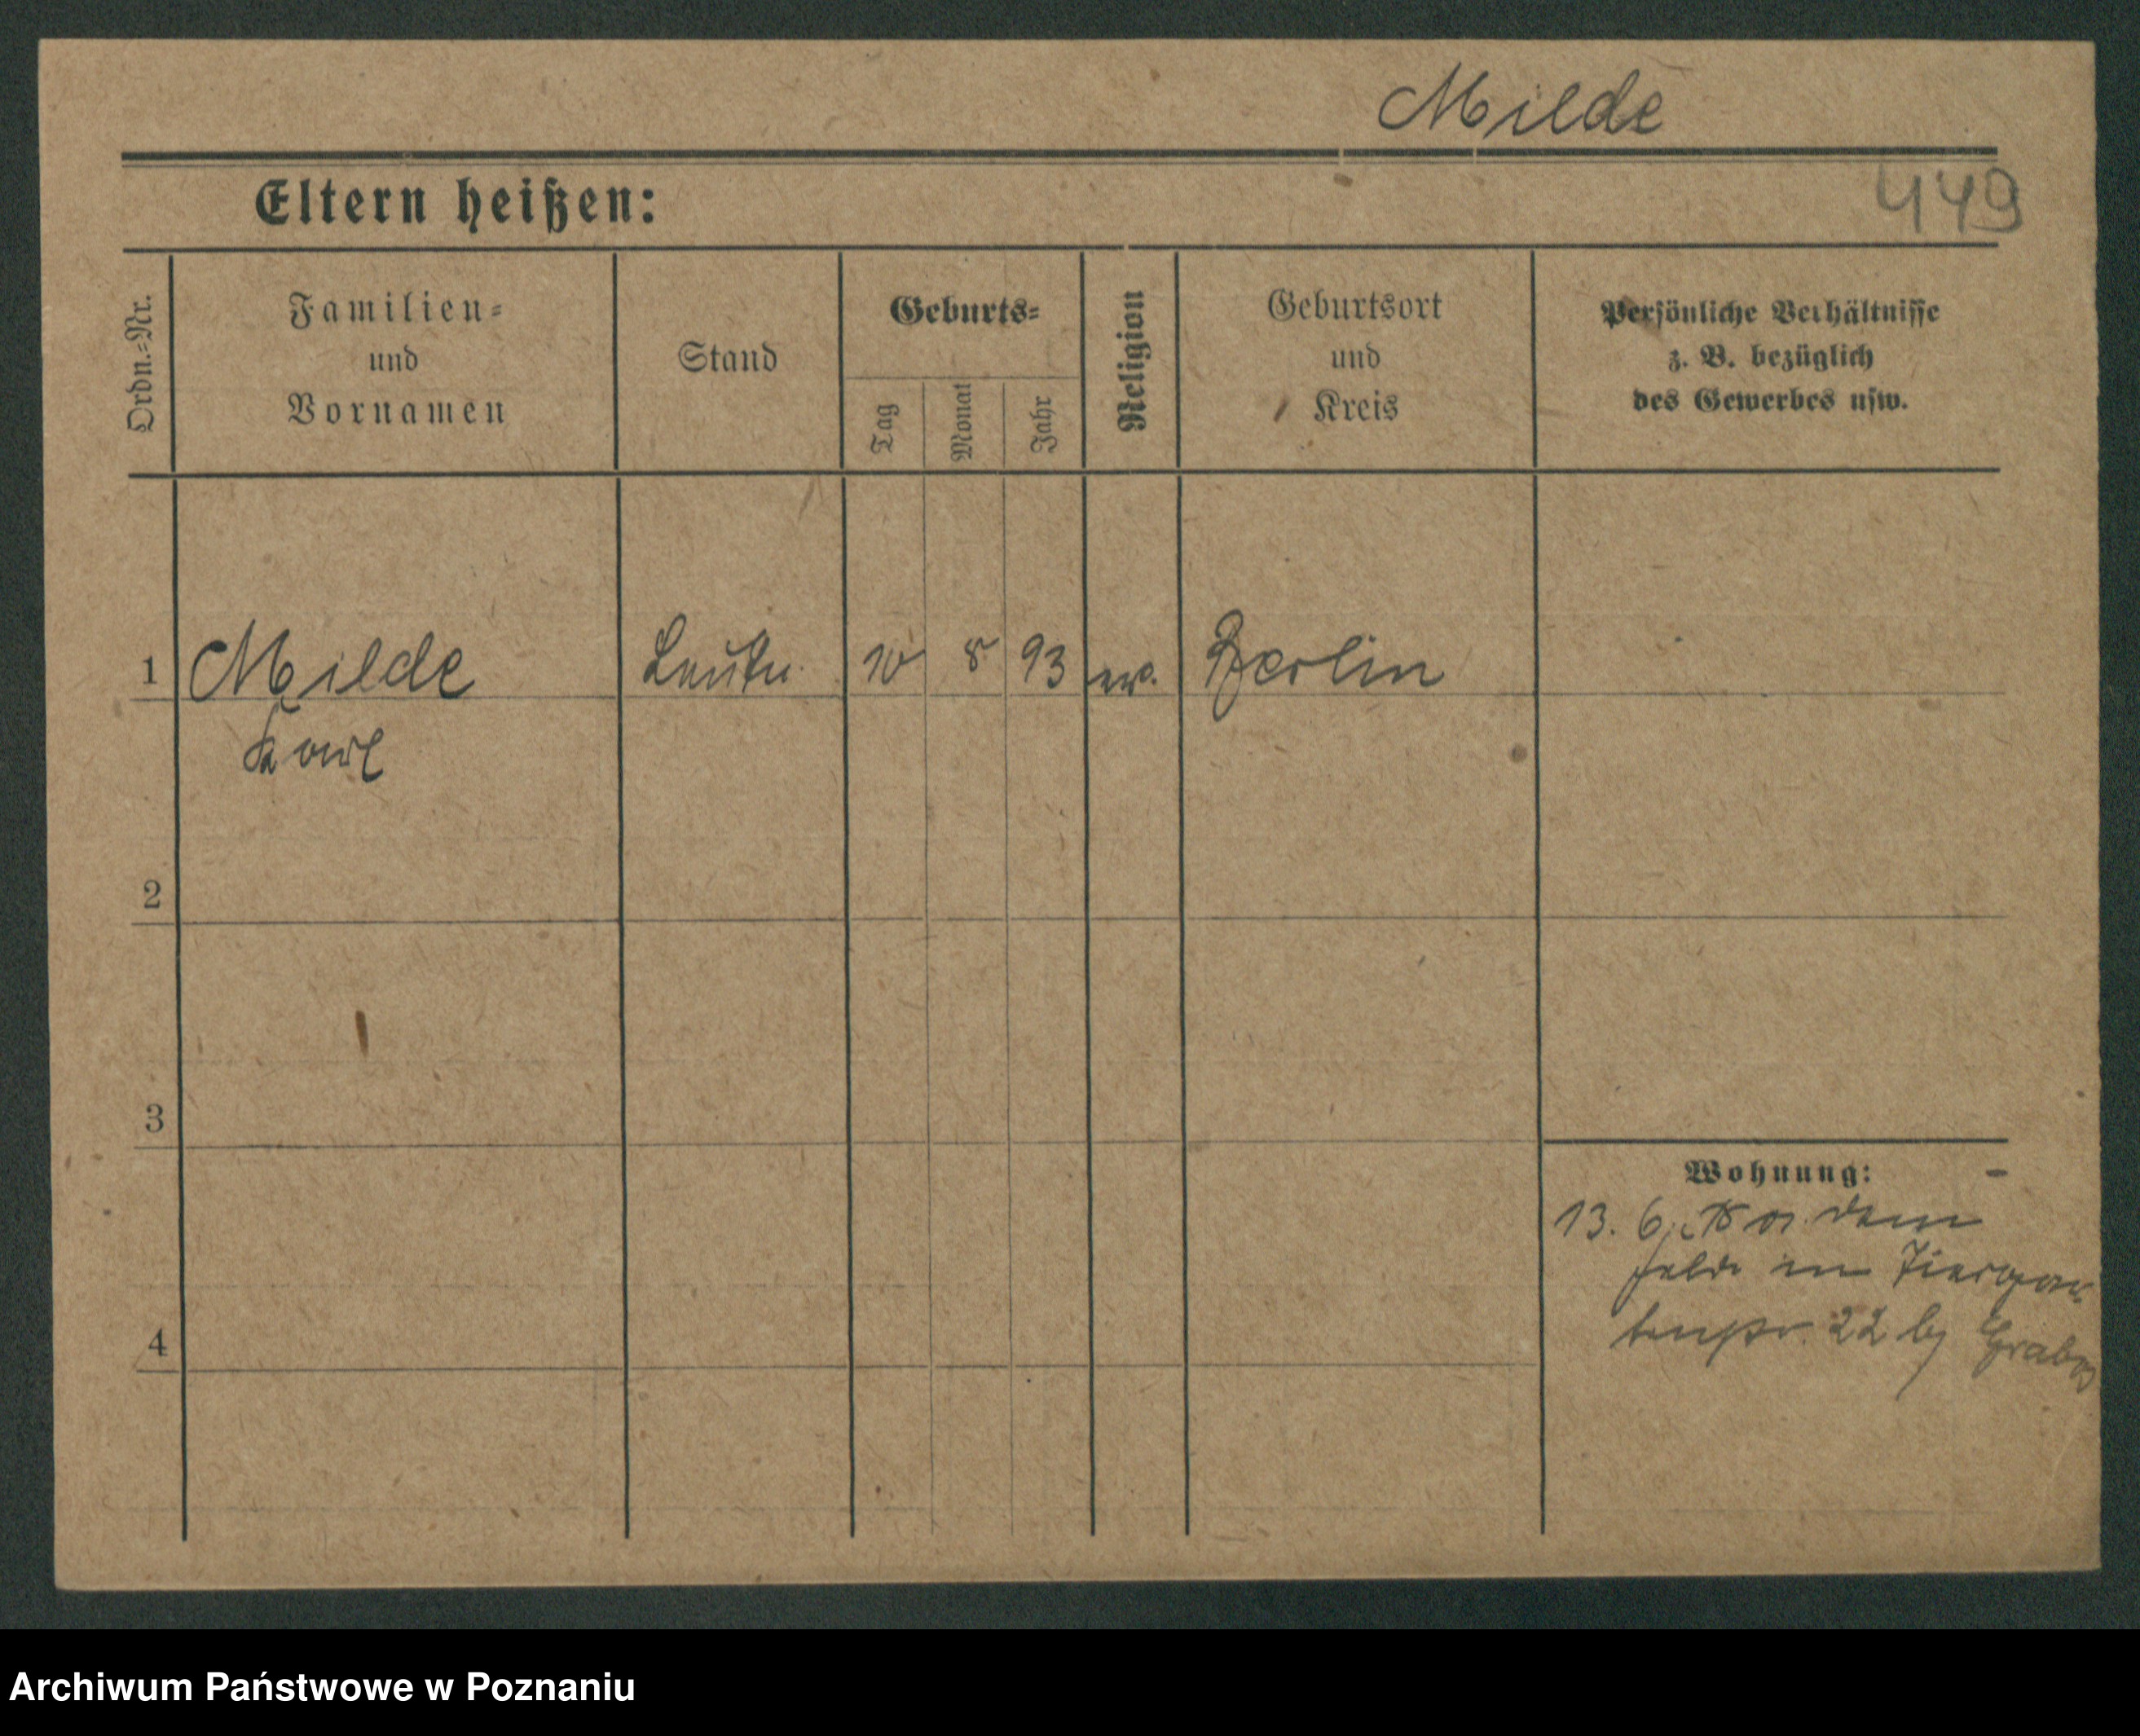 Milde
Eltern heißen:
449
Ordn.-Nr.
Familien-
und
Vornamen
Stand
Geburts-
Tag
Monat
Jahr
Religion
Geburtsort
und
Kreis
Persönliche Verhältnisse
z. B. bezüglich
des Gewerbes usw.
1 Milde Leutn. 10 8 93 ev. Berlin
Karl
2
3
4
Wohnung:
13. 6. dem
Felde in Tiergar-
tenstr. 22 bj
Archiwum Państwowe w Poznaniu